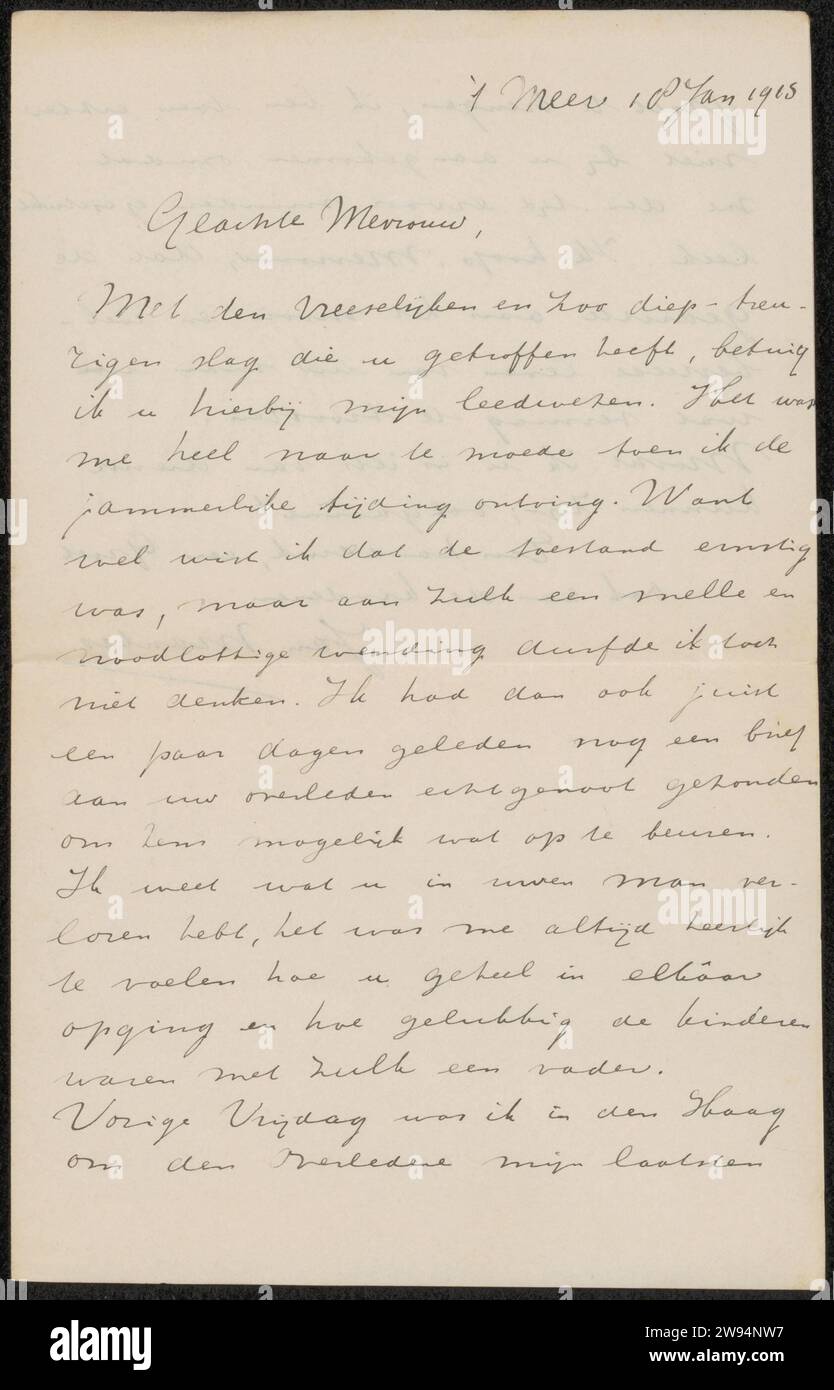 't Meer 18 Jan 1915
Geachte Mevrouw,
Met den vreeselijken en zoo diep-treu-
rigen slag die u getroffen heeft, betuig
ik u hierbij mijn leedwezen. Het was
me heel naar te moede toen ik de
jammerlike tijding ontving. Want
wel wist ik dat de toestand ernstig
was, maar aan zulk een snelle en
noodlottige wending durfde ik toch
niet denken. Ik had dan ook juist
een paar dagen geleden nog een brief
aan uw overleden echtgenoot gezonden
om hem mogelijk wat op te beuren.
Ik weet wat u in uwen man ver-
loren hebt, het was me altijd heerlijk
te voelen hoe u geheel in elkâar
opging en hoe gelukkig de kinderen
waren met zulk een vader.
Vorige Vrijdag was ik in den Haag
om den overledene mijn laatsten
alamy
alamy
Image ID: 2W94NW7
www.alamy.com